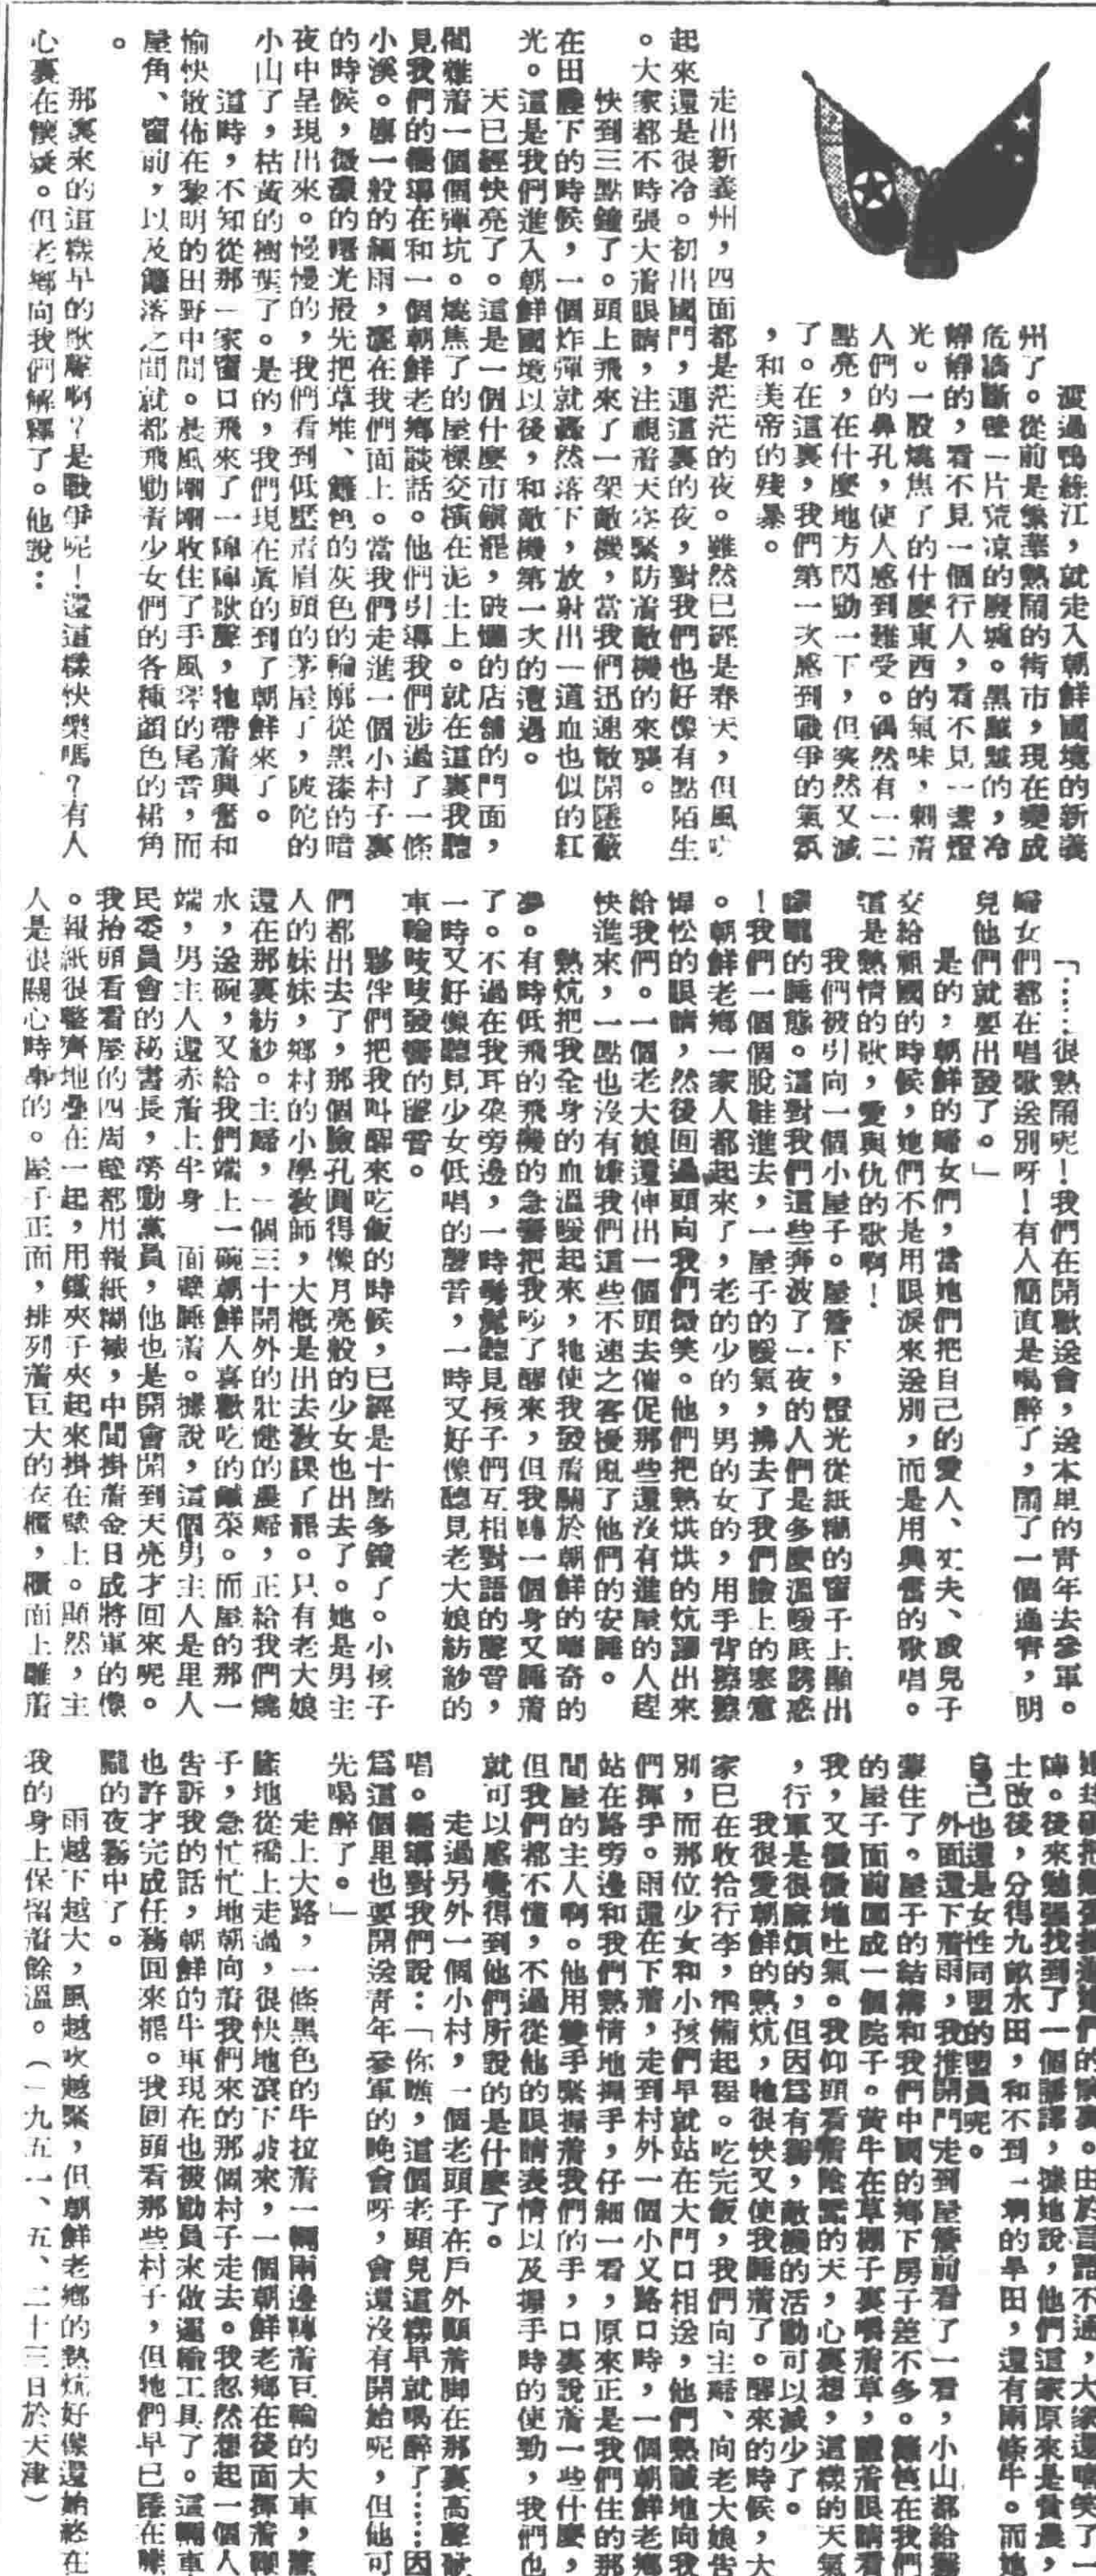 渡過鴨綠江，就走入朝鮮國境的新義
州了。從前是繁華熱鬧的街市，現在變成
危牆斷壁一片荒凉的廢墟。黑黝黝的，冷
靜靜的，看不見一個行人，看不見一盞燈
光。一股燒焦了的什麼東西的氣味，刺着
人們的鼻孔，使人感到難受。偶然有一二
點亮，在什麼地方閃動一下，但突然又滅
了。在這裏，我們第一次感到戰爭的氣氛
，和美帝的殘暴。
走出新義州，四面都是茫茫的夜。雖然已經是春天，但風吹
起來還是很冷。初出國門，連這裏的夜，對我們也好像有點陌生
。大家都不時張大着眼睛，注視着天空緊防着敵機的來襲。
快到三點鐘了。頭上飛來了一架敵機，當我們迅速散開隱蔽
在田隴下的時候，一個炸彈就轟然落下，放射出一道血也似的紅
光。這是我們進入朝鮮國境以後，和敵機第一次的遭遇。
天已經快亮了。這是一個什麼市鎭罷，破爛的店舖的門面，
間雜着一個個彈坑。燒焦了的屋樑交橫在泥土上。就在這裏我聽
見我們的嚮導在和一個朝鮮老鄉談話。他們引導我們涉過了一條
小溪。塵一般的細雨，洒在我們面上。當我們走進一個小村子裏
的時候，微濛的曙光最先把草堆、雜色的灰色的輪廓從黑漆的暗
夜中呈現出來。慢慢的，我們看到低壓着眉頭的茅屋了，陂陀的
小山了，枯黃的樹葉了。是的，我們現在眞的到了朝鮮來了。
這時，不知從那一家窗口飛來了一陣陣歌聲，牠帶着興奮和
愉快散佈在黎明的田野中間。晨風剛剛收住了手風琴的尾音，而
屋角、窗前，以及籬落之間就都飛動着少女們的各種顏色的裙角
。
那裏來的這樣早的歌聲啊？是戰爭呢！還這樣快樂嗎？有人
心裏在懷疑。但老鄉向我們解釋了。他說：
「……很熱鬧呢！我們在開歡送會，送本里的青年去參軍。
婦女們都在唱歌送別呀！有人簡直是喝醉了，鬧了一個通宵，明
兒他們就要出發了。」
是的，朝鮮的婦女們，當她們把自己的愛人、丈夫、或兒子
交給祖國的時候，她們不是用眼淚來送別，而是用興奮的歌唱。
這是熱情的歌，愛與仇的歌啊！
我們被引向一個小屋子。屋簷下，燈光從紙糊的窗子上顯出
朦朧的睡態。這對我們這些奔波了一夜的人們是多麼溫暖底誘惑
！我們一個個脫鞋進去，一屋子的暖氣，拂去了我們臉上的寒意
。朝鮮老鄉一家人都起來了，老的少的，男的女的，用手背擦擦
惺忪的眼睛，然後回過頭向我們微笑。他們把熱烘烘的炕讓出來
給我們。一個老大娘還伸出一個頭去催促那些還沒有進屋的人趕
快進來，一點也沒有嫌我們這些不速之客擾亂了他們的安睡。
熱炕把我全身的血溫暖起來，牠使我發着關於朝鮮的離奇的
夢。有時低飛的飛機的急響把我吵了醒來，但我轉一個身又睡着
了。不過在我耳朶旁邊，一時髣髴聽見孩子們互相對語的聲音，
一時又好像聽見少女低唱的聲音，一時又好像聽見老大娘紡紗的
車輪吱吱發響的聲音。
夥伴們把我叫醒來吃飯的時候，已經是十點多鐘了。小孩子
們都出去了，那個臉孔圓得像月亮般的少女也出去了。她是男主
人的妹妹，鄉村的小學敎師，大槪是出去敎課了罷。只有老大娘
還在那裏紡紗。主婦，一個三十開外的壯健的農婦，正給我們燒
水，送碗，又給我們端上一碗朝鮮人喜歡吃的鹹菜。而屋的那一
端，男主人還赤着上半身　面壁睡着。據說，這個男主人是里人
民委員會的秘書長，勞動黨員，他也是開會開到天亮才回來呢。
我抬頭看看屋的四周壁都用報紙糊裱，中間掛着金日成將軍的像
。報紙很整齊地疊在一起，用鐵夾子夾起來掛在壁上。顯然，主
人是很關心時事的。屋子正面，排列着巨大的衣櫃，櫃面上雕着
由於言語不通，大家還嘻笑了一
陣。後來勉强找到了一個翻譯，據她說，他們這家原來是貧農，
土改後，分得九畝水田，和不到一坰的旱田，還有兩條牛。而她
自己也還是女性同盟的盟員呢。
外面還下着雨，我推開門走到屋簷前看了一看，小山都給霧
蒙住了。屋子的結構和我們中國的鄉下房子差不多。籬笆在我們
的屋子面前圍成一個院子。黃牛在草棚子裏嚼着草，瞪着眼睛看
我，又微微地吐氣。我仰頭看着陰黯的天，心裏想，這樣的天氣
，行軍是很麻煩的，但因爲有霧，敵機的活動可以減少了。
我很愛朝鮮的熱炕，牠很快又使我睡着了。醒來的時候，大
家已在收拾行李，準備起程。吃完飯，我們向主婦、向老大娘吿
別，而那位少女和小孩們早就站在大門口相送，他們熱誠地向我
們揮手。雨還在下着，走到村外一個小叉路口時，一個朝鮮老鄉
站在路旁邊和我們熱情地握手，仔細一看，原來正是我們住的那
間屋的主人啊。他用雙手緊握着我們的手，口裏說着一些什麼，
但我們都不懂，不過從他的眼睛表情以及握手時的使勁，我們也
就可以感覺得到他們所說的是什麼了。
走過另外一個小村，一個老頭子在戶外顚着脚在那裏高聲歌
唱。嚮導對我們說：「你瞧，這個老頭兒這樣早就喝醉了……因
爲這個里也要開送青年參軍的晚會呀，會還沒有開始呢，但他可
先喝醉了。」
走上大路，一條黑色的牛拉着一輛兩邊轉着巨輪的大車，
地從橋上走過，很快地滾下坡來，一個朝鮮老鄉在後面揮着鞭
子，急忙忙地朝向着我們來的那個村子走去。我忽然想起一個人
吿訴我的話，朝鮮的牛車現在也被動員來做運輸工具了。這輛車
也許才完成任務回來罷。我回頭看那些村子，但牠們早已隱在朦
朧的夜霧中了。
雨越下越大，風越吹越緊，但朝鮮老鄉的熱炕好像還始終在
我的身上保留着餘溫。（一九五一、五、二十三日於天津）